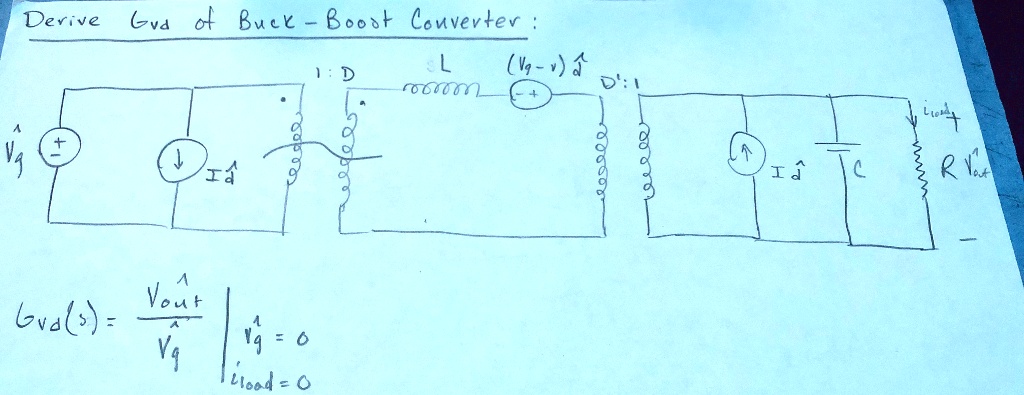 Derive Gvd of Buck-Boost Converter:
1:D
L
(Vg-v) d̂
D':1
- +
V̂g
+ -
I d̂
I d̂
C
iload
+
R V̂out
-
Gvd(s) = V̂out / V̂g | v̂g = 0
iload = 0